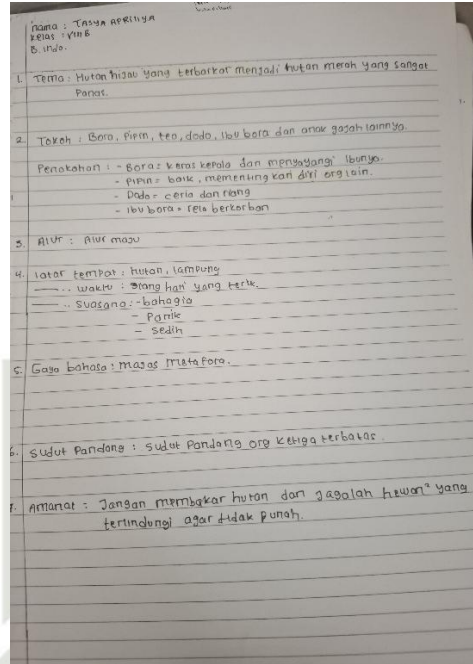 nama : TASYA APRILIYA
kelas : VIII B
B. indo.
1. Tema : Hutan hijau yang terbarkar menjadi hutan merah yang sangat
Panas.
2. Tokoh : Bora, Pipin, teo, dodo, ibu bora dan anak gajah lainnya.
Penokohan : - Bora : keras kepala dan menyayangi ibunya.
- PiPin = baik, mementingkan diri org lain.
- Dodo = ceria dan riang
- ibu bora = rela berkorban
3. Alur : Alur maju
4. latar tempat : hutan, lampung
.. waktu : siang hari yang terik.
.. suasana : - bahagia
- Panik
- sedih
5. Gaya bahasa : majas metafora.
6. sudut Pandang : sudut Pandang org ketiga terbatas.
7. Amanat : Jangan membakar hutan dan jagalah hewan² yang
terlindungi agar tidak punah.